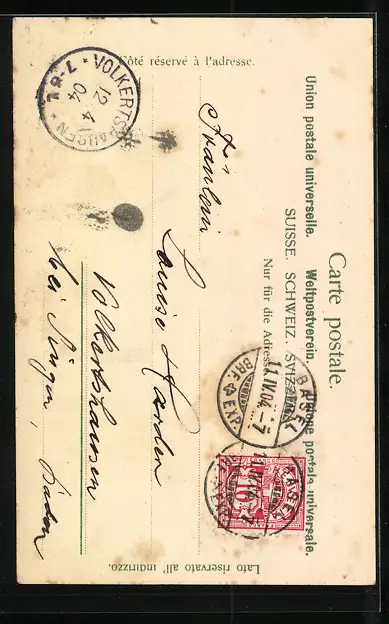 Carte postale.
Union postale universelle. Weltpostverein. Unione postale universale.
SUISSE. SCHWEIZ. SVIZZERA.
Nur für die Adresse
Côté réservé à l'adresse.
Lato riservato all' indirizzo.
BASEL 1
11.IV.04.-7
BRF. EXP.
BASEL
10
VOLKERTSHAUSEN
12 4
04
7-8 V
Fräulein
Louise Harder
Volkertshausen
bei Singen, Baden